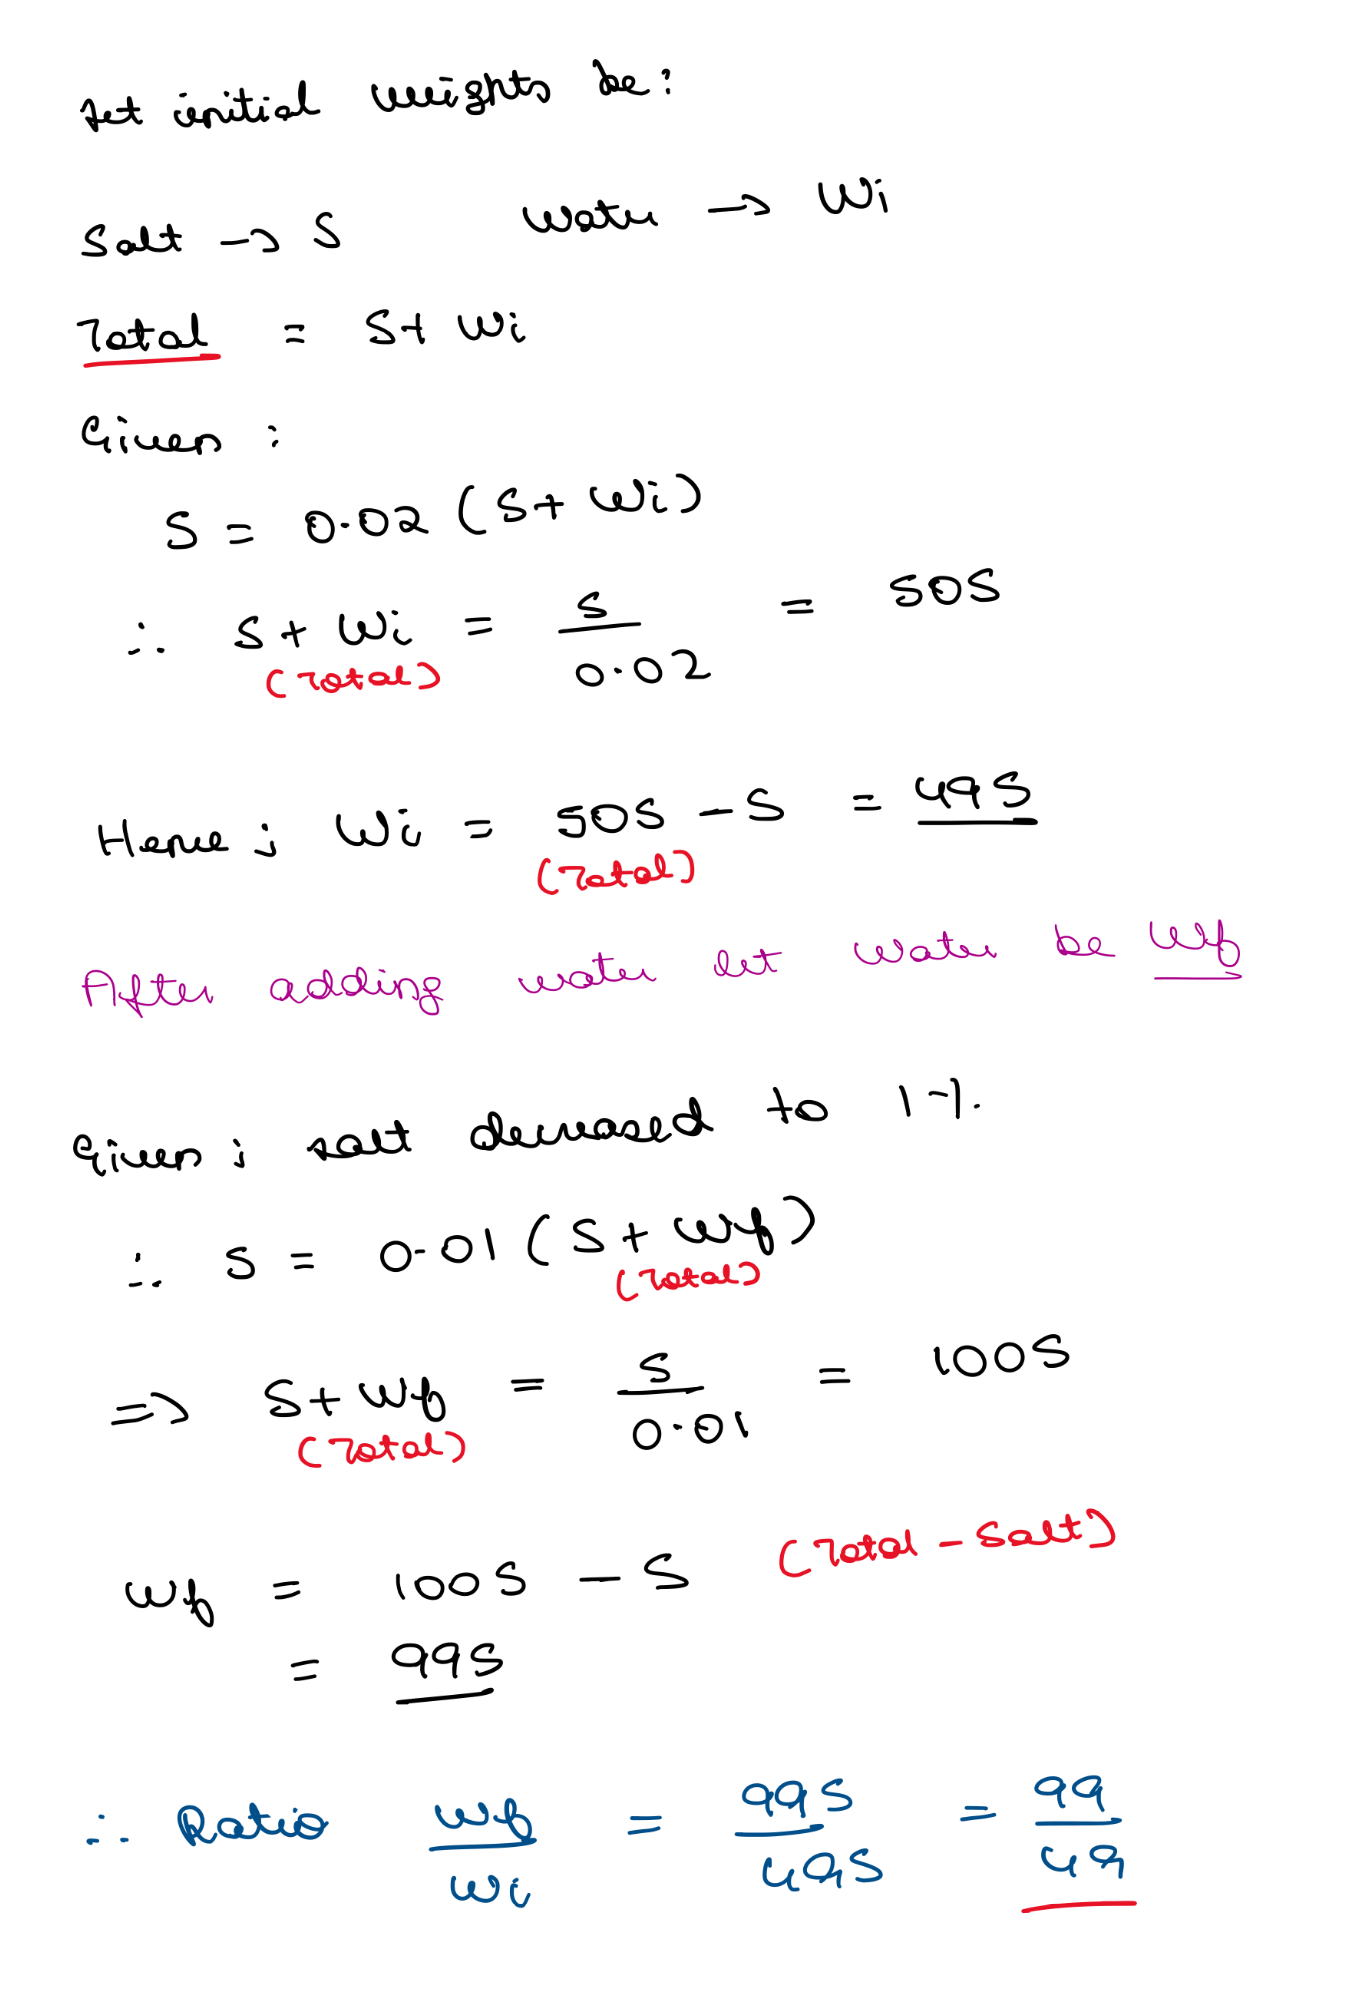 Let initial weights be:
Salt → S Water → Wi
Total = S + Wi
Given :
S = 0.02 (S + Wi)
∴ S + Wi = S / 0.02 = 50S
(Total)
Hence ; Wi = 50S - S = 49S
(Total)
After adding water let water be Wf
Given ; salt decreased to 1%
∴ S = 0.01 (S + Wf)
(Total)
⇒ S + Wf = S / 0.01 = 100S
(Total)
Wf = 100S - S (Total - Salt)
= 99S
∴ Ratio Wf / Wi = 99S / 49S = 99 / 49